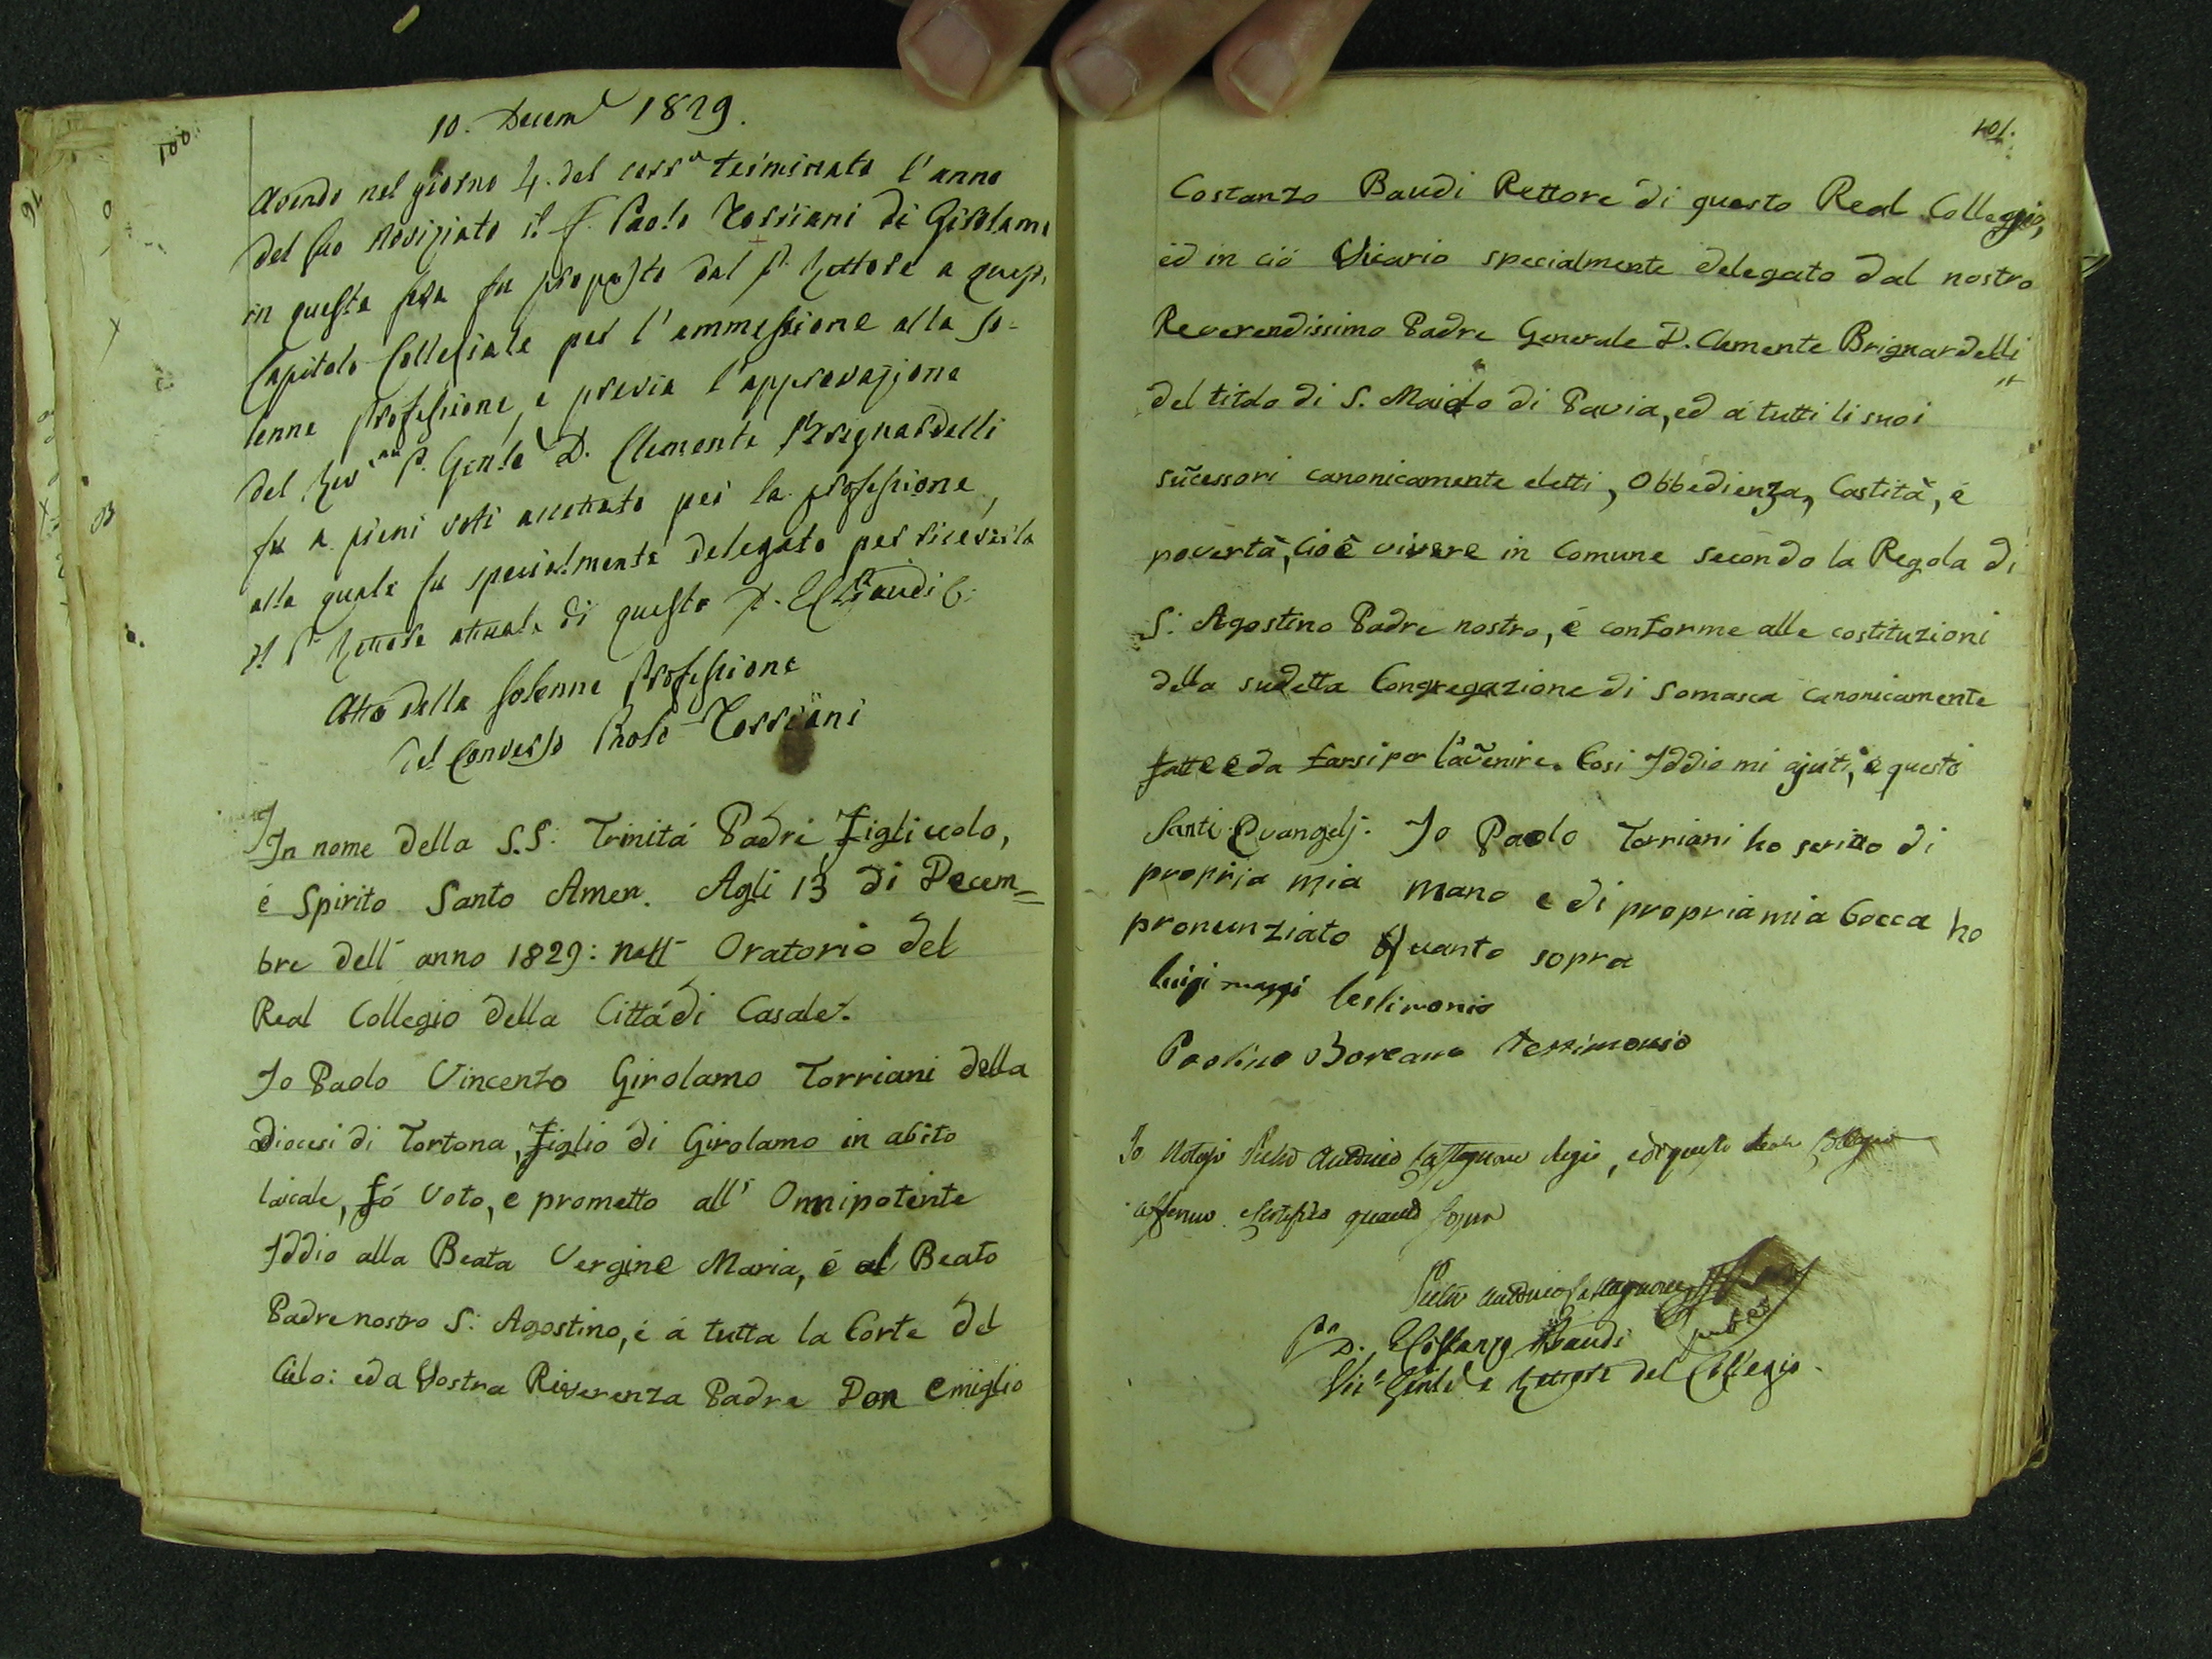 100.
10. Decem. 1829.
Avendo nel giorno 4. del corr.e terminato l'anno
del suo Noviziato il F. Paolo Torriani di Girolamo
in questa sera fu proposto dal P. Rettore a quest.
Capitolo Collegiale per l'ammessione alla so=
lenne professione, e previa l'approvazione
del Rev.mo P. Gen.le D. Clemente Brignardelli
fu a pieni voti accettato per la professione,
alla quale fu specialmente delegato per riceverla
il P. Rettore attuale di questo D. E. C. Baudi C.
Atto della solenne Professione
del Converso Paolo Torriani
In nome della S.S. Trinitá Padri, Figliuolo,
é Spirito Santo Amen. Agli 13 di Decem=
bre dell'anno 1829: nell' Oratorio del
Real Collegio della Cittá di Casale.
Jo Paolo Vincenzo Girolamo Torriani della
Diocesi di Tortona, figlio di Girolamo in abito
laicale, fó Voto, e prometto all' Onnipotente
Iddio alla Beata Vergine Maria, é al Beato
Padre nostro S. Agostino, é á tutta la Corte del
Cielo: ed a Vostra Riverenza Padre Don Emiglio
101.
Costanzo Baudi Rettore di questo Real Colleggio,
ed in ció Vicario specialmente delegato dal nostro
Reverendissimo Padre Generale D. Clemente Brignardelli
del titolo di S. Maiolo di Pavia, ed á tutti li suoi
sucessori canonicamente eletti, Obbedienza, Castitá, é
povertá, cioé vivere in Comune secondo la Regola di
S. Agostino Padre nostro, é conforme alle costituzioni
della sudetta Congregazione di Somasca canonicamente
fatte e da farsi per l'avenire. Cosi Iddio mi ajuti, é questi
Santi Evangelj. Jo Paolo Torriani ho scritto di
propria mia mano e di propria mia bocca ho
pronunziato Quanto sopra
luigi maggi testimonio
Paolino Boreano testimonio
Io Notajo Pietro Antonio Castagnone Regio, e di questo Real Collegio
affermo e certifico quanto sopra
Pietro Antonio Castagnone
D. E. Costanzo Baudi
Vic. Gen.le e Rettore del Collegio.